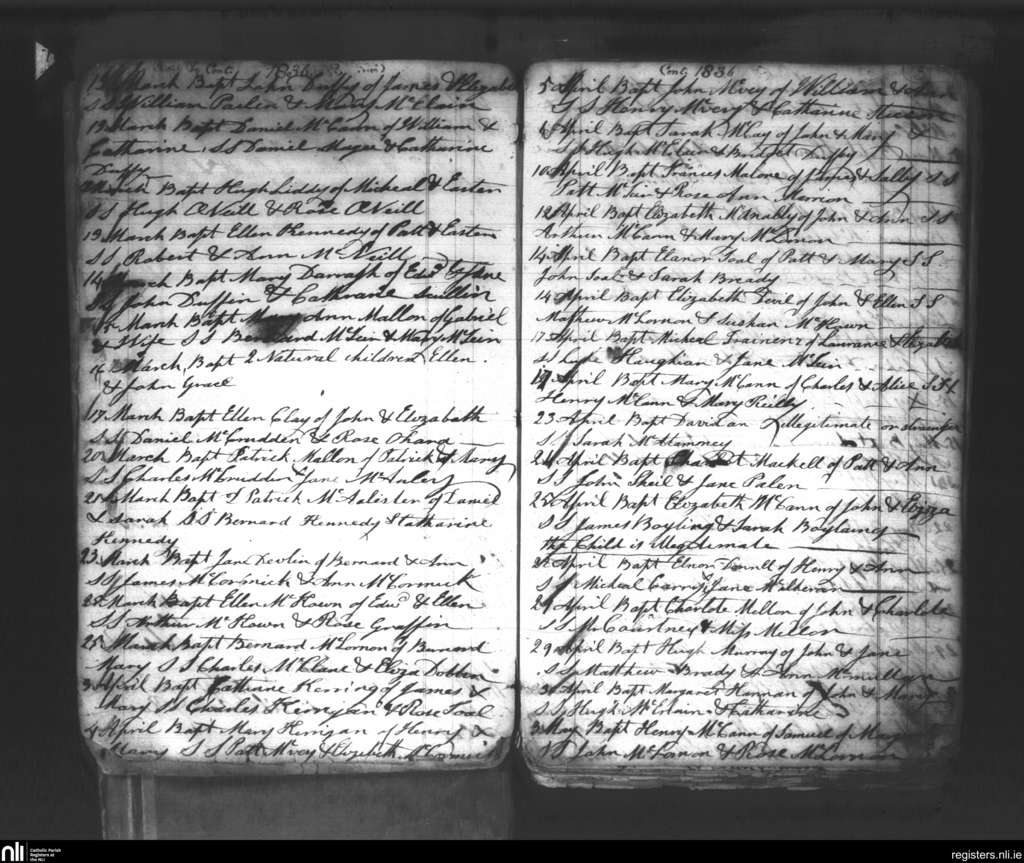 Cont 1836
March Bapt John Duffy of James & Elizabeth
SS William Parlen & Mary McClain
13 March Bapt Daniel McCann of William &
Catharine SS Daniel Magee & Catharine
Duffy
March Bapt Hugh Liddy of Micheal & Easter
SS Hugh ONeill & Rose ONeill
19 March Bapt Ellen Kennedy of Patt & Easter
SS Robert & Ann McNeill
14 March Bapt Mary Darragh of Edwd & Jane
SS John Duffin & Cathrane Scullin
15 March Bapt Mary Ann Mallon of Gabriel
& Wife SS Bernard McGuin & Mary McGuin
16 March Bapt 2 Natural children Ellen
& John Grace
17 March Bapt Ellen Clay of John & Elizabeth
SS Daniel McCrudden & Rose Ohara
20 March Bapt Patrick Mallon of Patrick & Nancy
SS Charles McCrudden Jane McAuley
March Bapt Patrick McAlister of Daniel
& Sarah SS Bernard Kennedy & Catharine
Kennedy
23 March Bapt Jane Devlin of Bernard & Ann
SS James McCormick & Ann McCormick
March Bapt Ellen McKown of Edwd & Ellen
SS Arthur McKown & Rose Graffin
25 March Bapt Bernard McLornon of Barnard
Mary SS Charles McClane & Eliza Dobbin
3 April Bapt Cathrane Kerring of James &
Mary SS Charles Kerrigan & Rose Toal
4 April Bapt Mary Kerrigan of Henry &
Mary SS Patt McVey & Elizabeth McCormick
Cont 1836
5 April Bapt John McVey of William &
SS Henry McVey & Catharine
April Bapt Sarah McCay of John & Mary
SS Hugh & Bridget Duffy
10 April Bapt Frances Malone of James & Sally SS
Patt McGuin & Rose Ann Merrion
12 April Bapt Elizabeth McAnally of John & Ann SS
Arthur McCann & Mary McLernon
14 April Bapt Elanor Toal of Patt & Mary SS
John Toal & Sarah Bready
14 April Bapt Elizabeth Devil of John & Ellen SS
Mathew McLornon & Sushan McKown
17 April Bapt Micheal Trainer of Laurance & Elizabeth
SS Luke Haughian & Jane McGuin
17 April Bapt Mary McCann of Charles & Alice SS
Henry McCann & Mary Reilly
23 April Bapt David an Illegitimate or
SS Sarah McHamney
24 April Bapt Mackell of Patt & Ann
SS John Sheil & Jane Palen
25 April Bapt Elizabeth McCann of John & Eliza
SS James Boyling & Sarah Boylaing
the Child is Illegitimate
April Bapt Elnor Donnell of Henry & Ann
SS Micheal Carry & Jane
27 April Bapt Charlote Mellon of John & Charlote
SS Mr Courtney & Miss Mellon
29 April Bapt Hugh Murray of John & Jane
SS Matthew Brady & Ann McMullan
30 April Bapt Margaret Hannan of John & Mary
SS Hugh McErlain & Catharine
3 May Bapt Henry McCann of Samuel & Mary
SS John McLornon & Rose McLornon
nli
Catholic Parish
Registers at
the NLI
registers.nli.ie